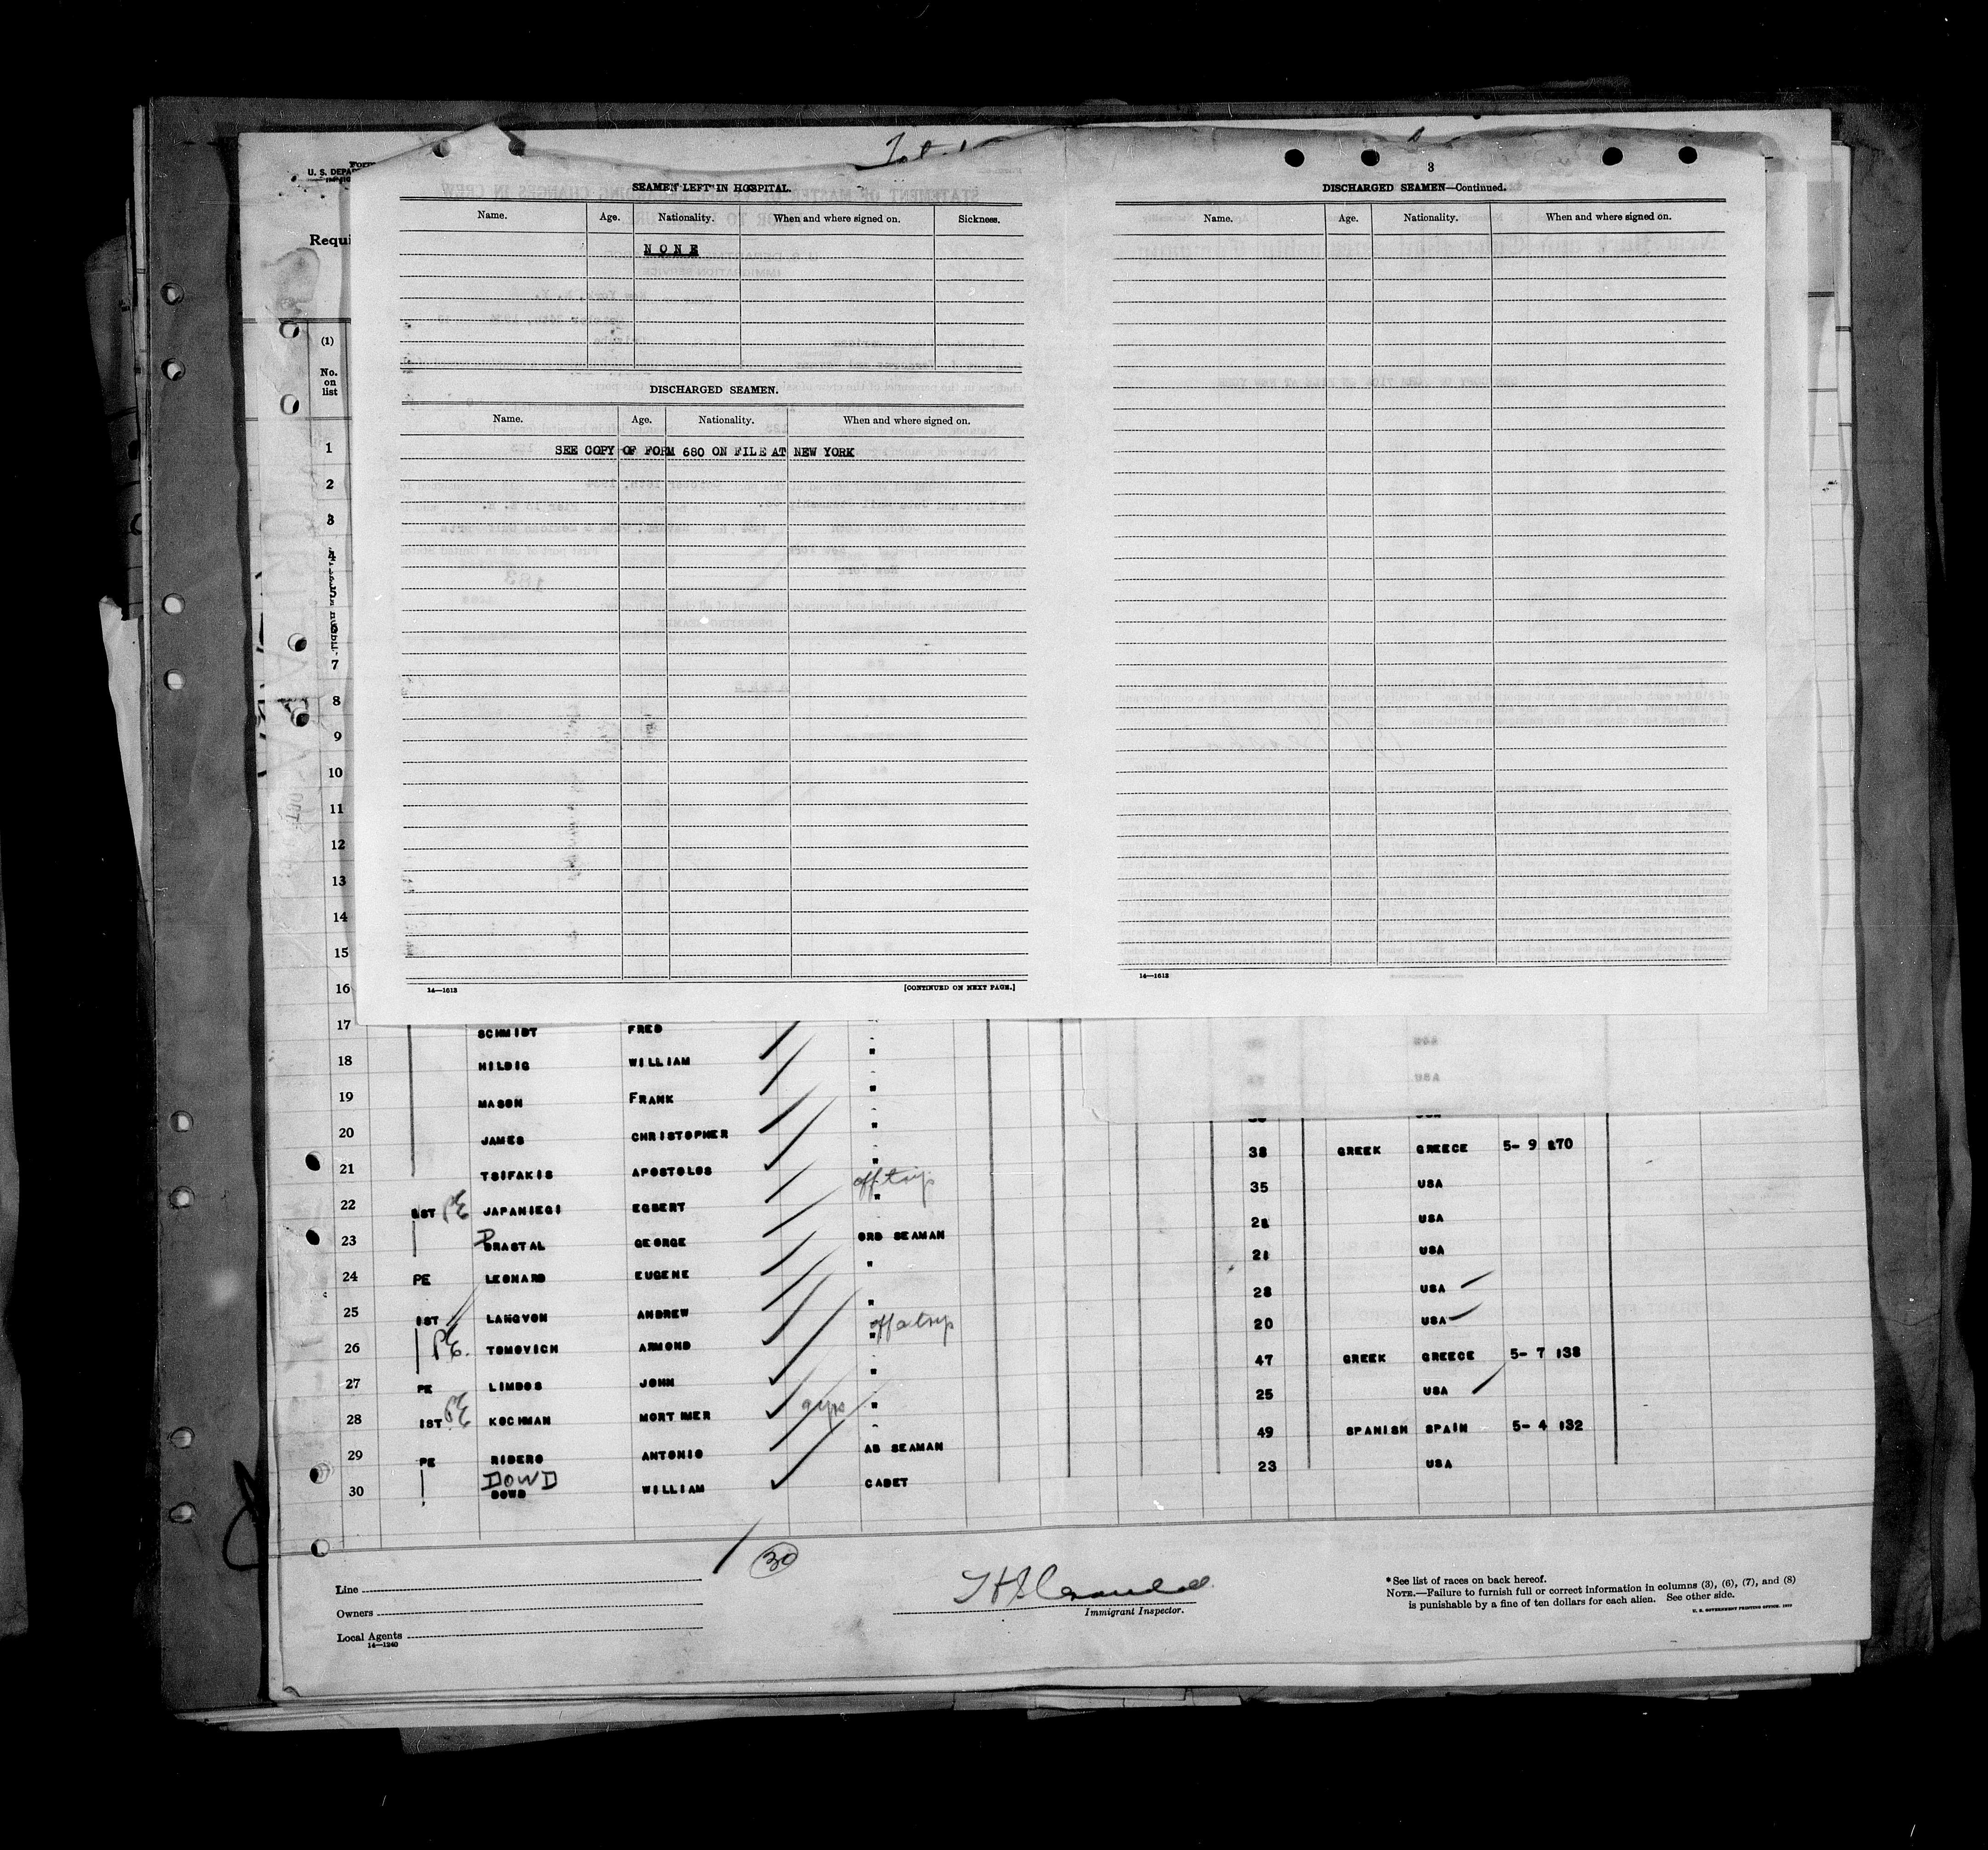 Form
U. S. DEPA
Requi
(1)
No.
on
list
SEAMEN LEFT IN HOSPITAL.
Name. Age. Nationality. When and where signed on. Sickness.
NONE
DISCHARGED SEAMEN.
Name. Age. Nationality. When and where signed on.
SEE COPY OF FORM 680 ON FILE AT NEW YORK
14—1613 [CONTINUED ON NEXT PAGE.]
3
DISCHARGED SEAMEN—Continued.
Name. Age. Nationality. When and where signed on.
14—1613
1
2
3
4
5
6
7
8
9
10
11
12
13
14
15
16
17 SCHMIDT FRED
18 HILDIG WILLIAM "
19 MASON FRANK "
20 JAMES CHRISTOPHER "
21 TSIFAKIS APOSTOLOS " 38 GREEK GREECE 5- 9 170
22 1ST PE JAPANIEGI EGBERT off trip " 35 USA
23 DRASTAL GEORGE ORD SEAMAN 21 USA
24 PE LEONARD EUGENE " 21 USA
25 1ST LANGVON ANDREW " 28 USA
26 PE. TOMOVICH ARMOND off a trip " 20 USA
27 PE LIMBOS JOHN " 47 GREEK GREECE 5- 7 138
28 1ST PE KOCHMAN MORTIMER " 25 USA
29 PE RIBERO ANTONIO AB SEAMAN 49 SPANISH SPAIN 5- 4 132
30 DOWD DOWD WILLIAM CADET 23 USA
30
Line
Owners
Local Agents
14—1240
Immigrant Inspector.
*See list of races on back hereof.
NOTE.—Failure to furnish full or correct information in columns (3), (6), (7), and (8)
is punishable by a fine of ten dollars for each alien. See other side.
U. S. GOVERNMENT PRINTING OFFICE